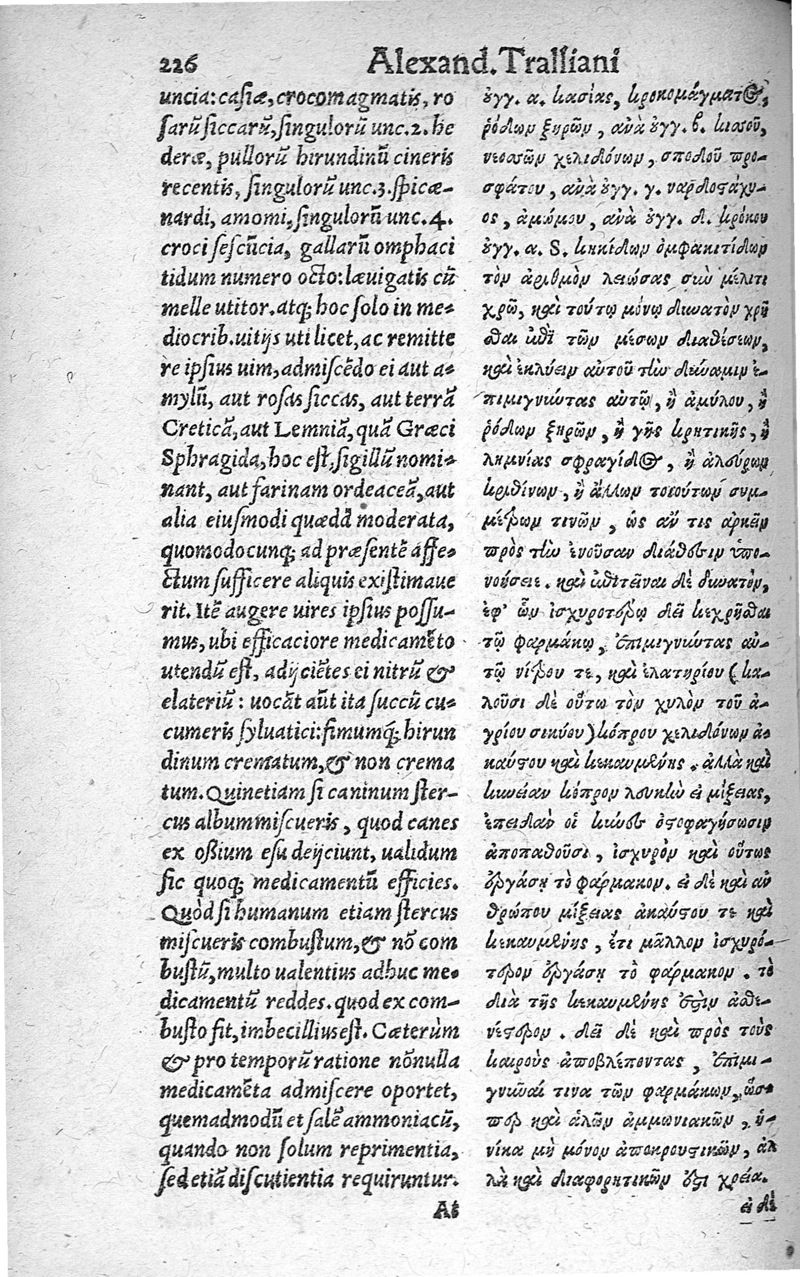 226 Alexand. Tralliani
uncia: casiæ, crocomagmatis, ro
sarũ siccarũ, singulorũ unc. 2. he
deræ, pullorũ hirundinũ cineris
recentis, singulorũ unc. 3. spicæ-
nardi, amomi, singulorũ unc. 4.
croci sescũcia, gallarũ omphaci
tidum numero octo: læuigatis cũ
melle utitor. atq; hoc solo in me-
diocrib. uitijs uti licet, ac remitte
re ipsius uim, admiscẽdo ei aut a-
mylũ, aut rosas siccas, aut terrã
Creticã, aut Lemniã, quã Græci
Sphragida, hoc est, sigillũ nomi-
nant, aut farinam ordeaceã, aut
alia eiusmodi quædã moderata,
quomodocunq; ad præsentẽ affe-
ctum sufficere aliquis existimaue
rit. Itẽ augere uires ipsius possu-
mus, ubi efficaciore medicamẽto
utendũ est, adijciẽtes ei nitrũ &
elateriũ: uocãt aũt ita succũ cu-
cumeris syluatici: fimumq́; hirun
dinum crematum, & non crema
tum. Quinetiam si caninum ster-
cus album miscueris, quod canes
ex ossium esu deijciunt, ualidum
sic quoq; medicamentũ efficies.
Quòd si humanum etiam stercus
miscueris combustum, & nõ com
bustũ, multo ualentius adhuc me-
dicamentũ reddes. quod ex com-
busto fit, imbecillius est. Cæterùm
& pro temporũ ratione nõnulla
medicamẽta admiscere oportet,
quemadmodũ et salẽ ammoniacũ,
quando non solum reprimentia,
sed etiã discutientia requiruntur.
At
ȣγγ. α. κασίας, κροκομάγματος,
ῥόδων ξηρῶν, ἀνὰ ȣγγ. β. κισσοῦ,
νεοσσῶν χελιδόνων, σποδοῦ προ-
σφάτου, ἀνὰ ȣγγ. γ. ναρδοστάχυ-
ος, ἀμώμου, ἀνὰ ȣγγ. δ. κρόκου
ȣγγ. α. S. κηκίδων ὀμφακιτίδων
τὸν ἀριθμὸν λειώσας σὺν μέλιτι
χρῶ, καὶ τούτῳ μόνῳ δυνατὸν χρῆ
σθαι ἐπὶ τῶν μέσων διαθέσεων,
καὶ ἐκλύειν αὐτοῦ τὴν δύναμιν ἐ-
πιμιγνύντας αὐτῷ, ἢ ἀμύλου, ἢ
ῥόδων ξηρῶν, ἢ γῆς κρητικῆς, ἢ
λημνίας σφραγίδος, ἢ ἀλεύρων
κριθίνων, ἢ ἄλλων τοιούτων συμ-
μέτρων τινῶν, ὡς ἄν τις ἀρκεῖν
πρὸς τὴν ἐνοῦσαν διάθεσιν ὑπο-
νούσειε. καὶ ἐπιτεῖναι δὲ δυνατὸν,
ἐφ’ ὧν ἰσχυροτέρῳ δεῖ κεχρῆσθαι
τῷ φαρμάκῳ, ἐπιμιγνύντας αὐ-
τῷ νίτρου τε, καὶ ἐλατηρίου (κα-
λοῦσι δὲ οὕτω τὸν χυλὸν τοῦ ἀ-
γρίου σικύου) κόπρου χελιδόνων ἀ-
καύστου καὶ κεκαυμένης. ἀλλὰ καὶ
κυνείαν κόπρον λευκὴν εἰ μίξειας,
ἐπειδὰν οἱ κύνες ὀστοφαγήσωσιν
ἀποπατοῦσι, ἰσχυρὸν καὶ οὕτως
ἐργάσῃ τὸ φάρμακον. εἰ δὲ καὶ ἀν
θρώπου μίξειας ἀκαύστου τε καὶ
κεκαυμένης, ἔτι μᾶλλον ἰσχυρό-
τερον ἐργάσῃ τὸ φάρμακον. τὸ
διὰ τῆς κεκαυμένης ἐστὶν ἀσθε-
νέστερον. δεῖ δὲ καὶ πρὸς τοὺς
καιροὺς ἀποβλέποντας, ἐπιμι-
γνῦναί τινα τῶν φαρμάκων, ὥσ
περ καὶ ἁλῶν ἀμμωνιακῶν, ἡ-
νίκα μὴ μόνον ἀποκρουστικῶν, ἀλ
λὰ καὶ διαφορητικῶν ἐστι χρεία.
εἰ δὲ